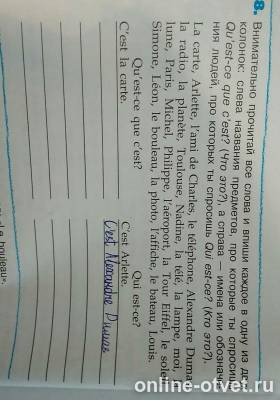 8. Внимательно прочитай все слова и впиши каждое в одну из
колонок: слева названия предметов, про которые ты спросишь
Qu'est-ce que c'est? (Что это?), а справа — имена или обозначе
ния людей, про которых ты спросишь Qui est-ce? (Кто это?).
La carte, Arlette, l'ami de Charles, le téléphone, Alexandre Dumas,
la radio, la planète, Toulouse, Nadine, la télé, la lampe, moi,
lune, Paris, Michel, Philippe, l'aéroport, la Tour Eiffel, le soleil,
Simone, Léon, le bouleau, la photo, l'affiche, le bateau, Louis.
Qu'est-ce que c'est? Qui est-ce?
C'est la carte. C'est Arlette.
C'est Alexandre Dumas
bouleau".
online-otvet.ru